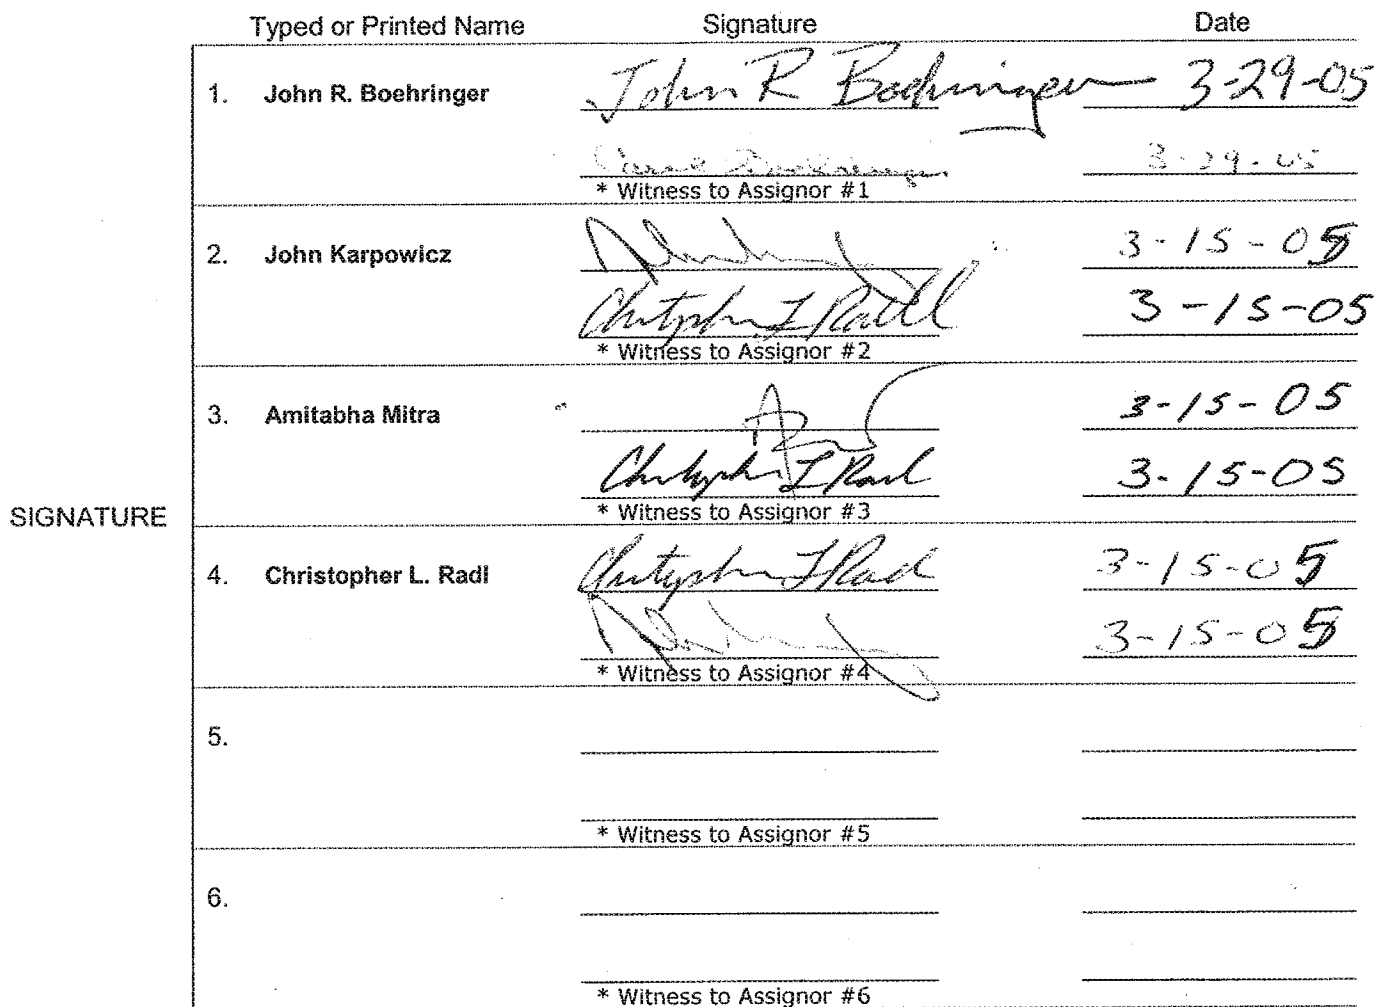 Typed or Printed Name Signature Date
1. John R. Boehringer John R Boehringer 3-29-05
Boehringer 3-29-05
* Witness to Assignor #1
2. John Karpowicz 3-15-05
Christopher L Radl 3-15-05
* Witness to Assignor #2
3. Amitabha Mitra 3-15-05
Christopher L Radl 3-15-05
* Witness to Assignor #3
SIGNATURE
4. Christopher L. Radl Christopher L Radl 3-15-05
3-15-05
* Witness to Assignor #4
5.
* Witness to Assignor #5
6.
* Witness to Assignor #6